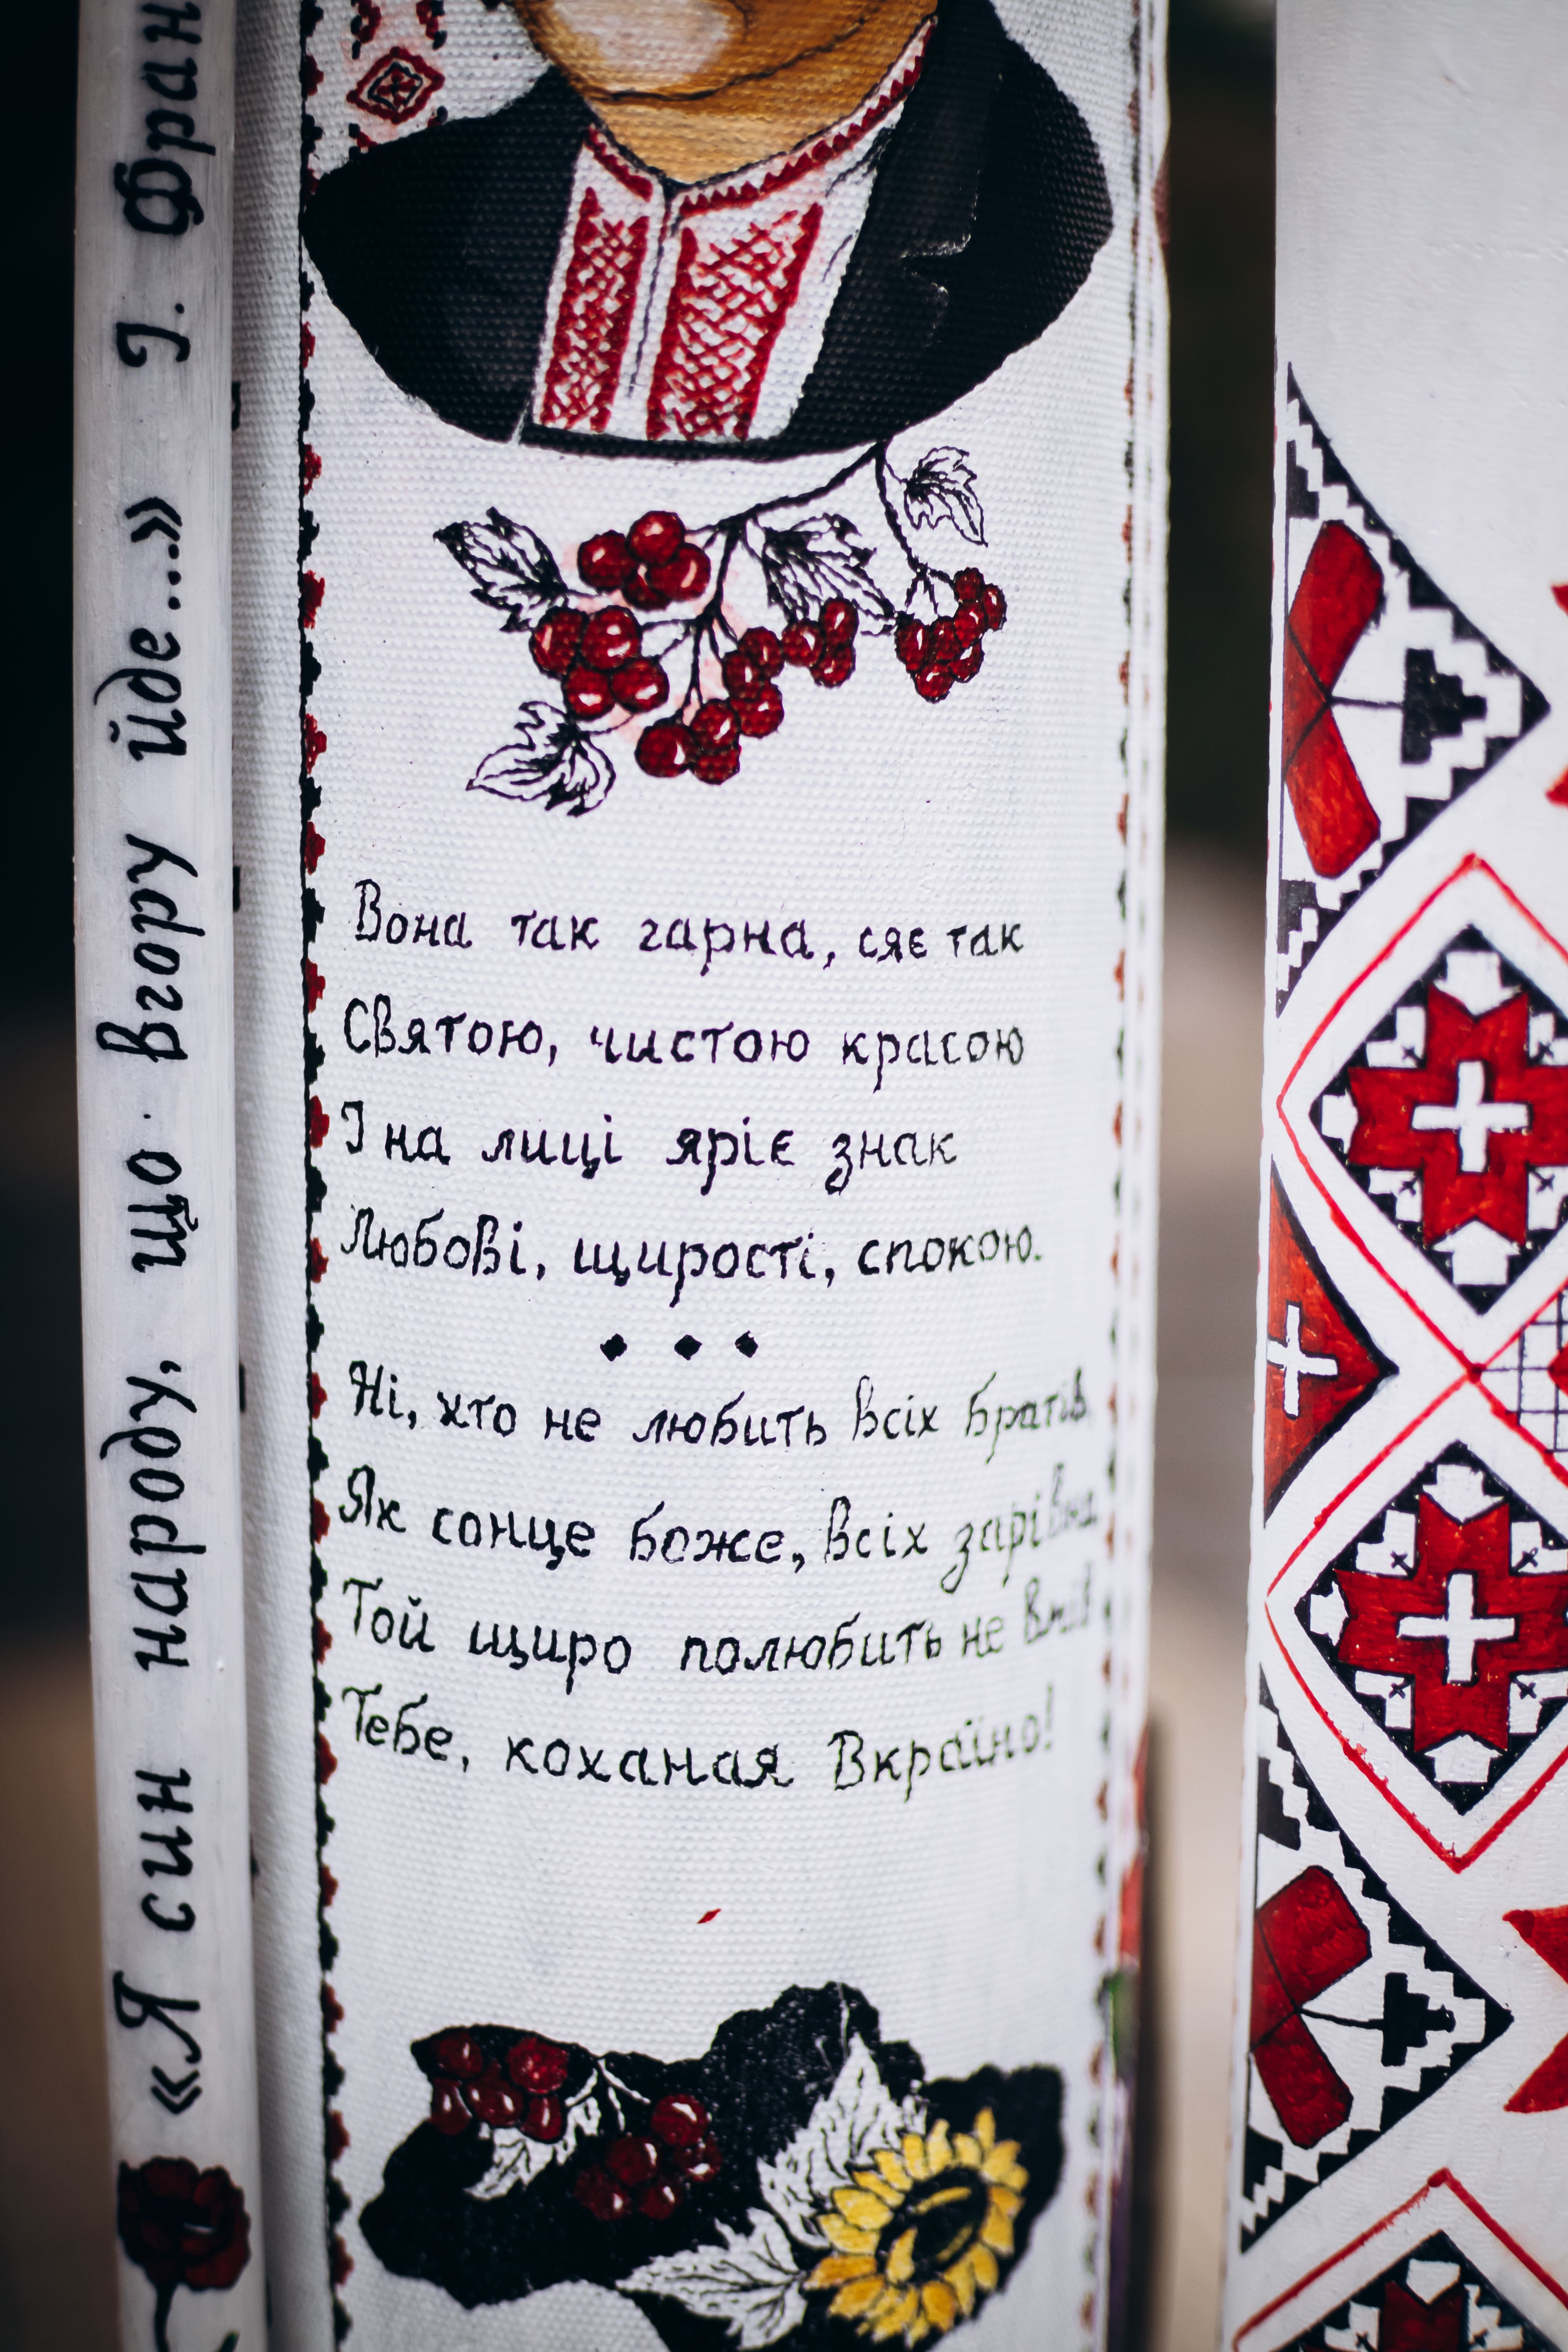 «Я син народу, що вгору йде...» І. Фран
Вона так гарна, сяє так
Святою, чистою красою
І на лиці яріє знак
Любові, щирості, спокою.
Ні, хто не любить всіх братів,
Як сонце боже, всіх зарівно
Той щиро полюбить не вмів
Тебе, коханая Вкраїно!